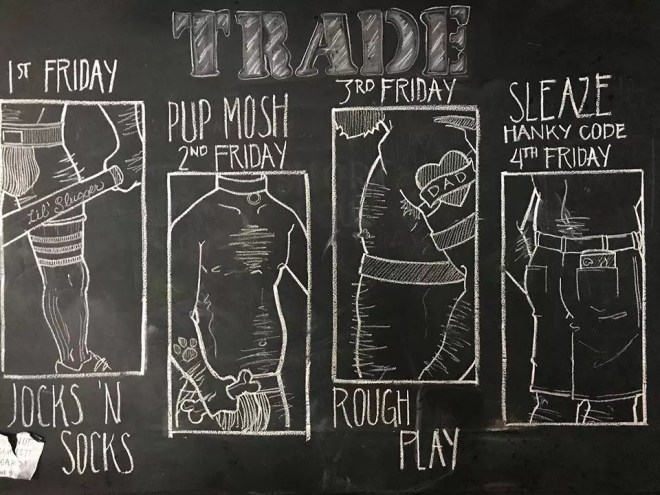 TRADE
1ST FRIDAY
Lil' Slugger
JOCKS 'N
SOCKS
PUP MOSH
2ND FRIDAY
3RD FRIDAY
DAD
ROUGH
PLAY
SLEAZE
HANKY CODE
4TH FRIDAY